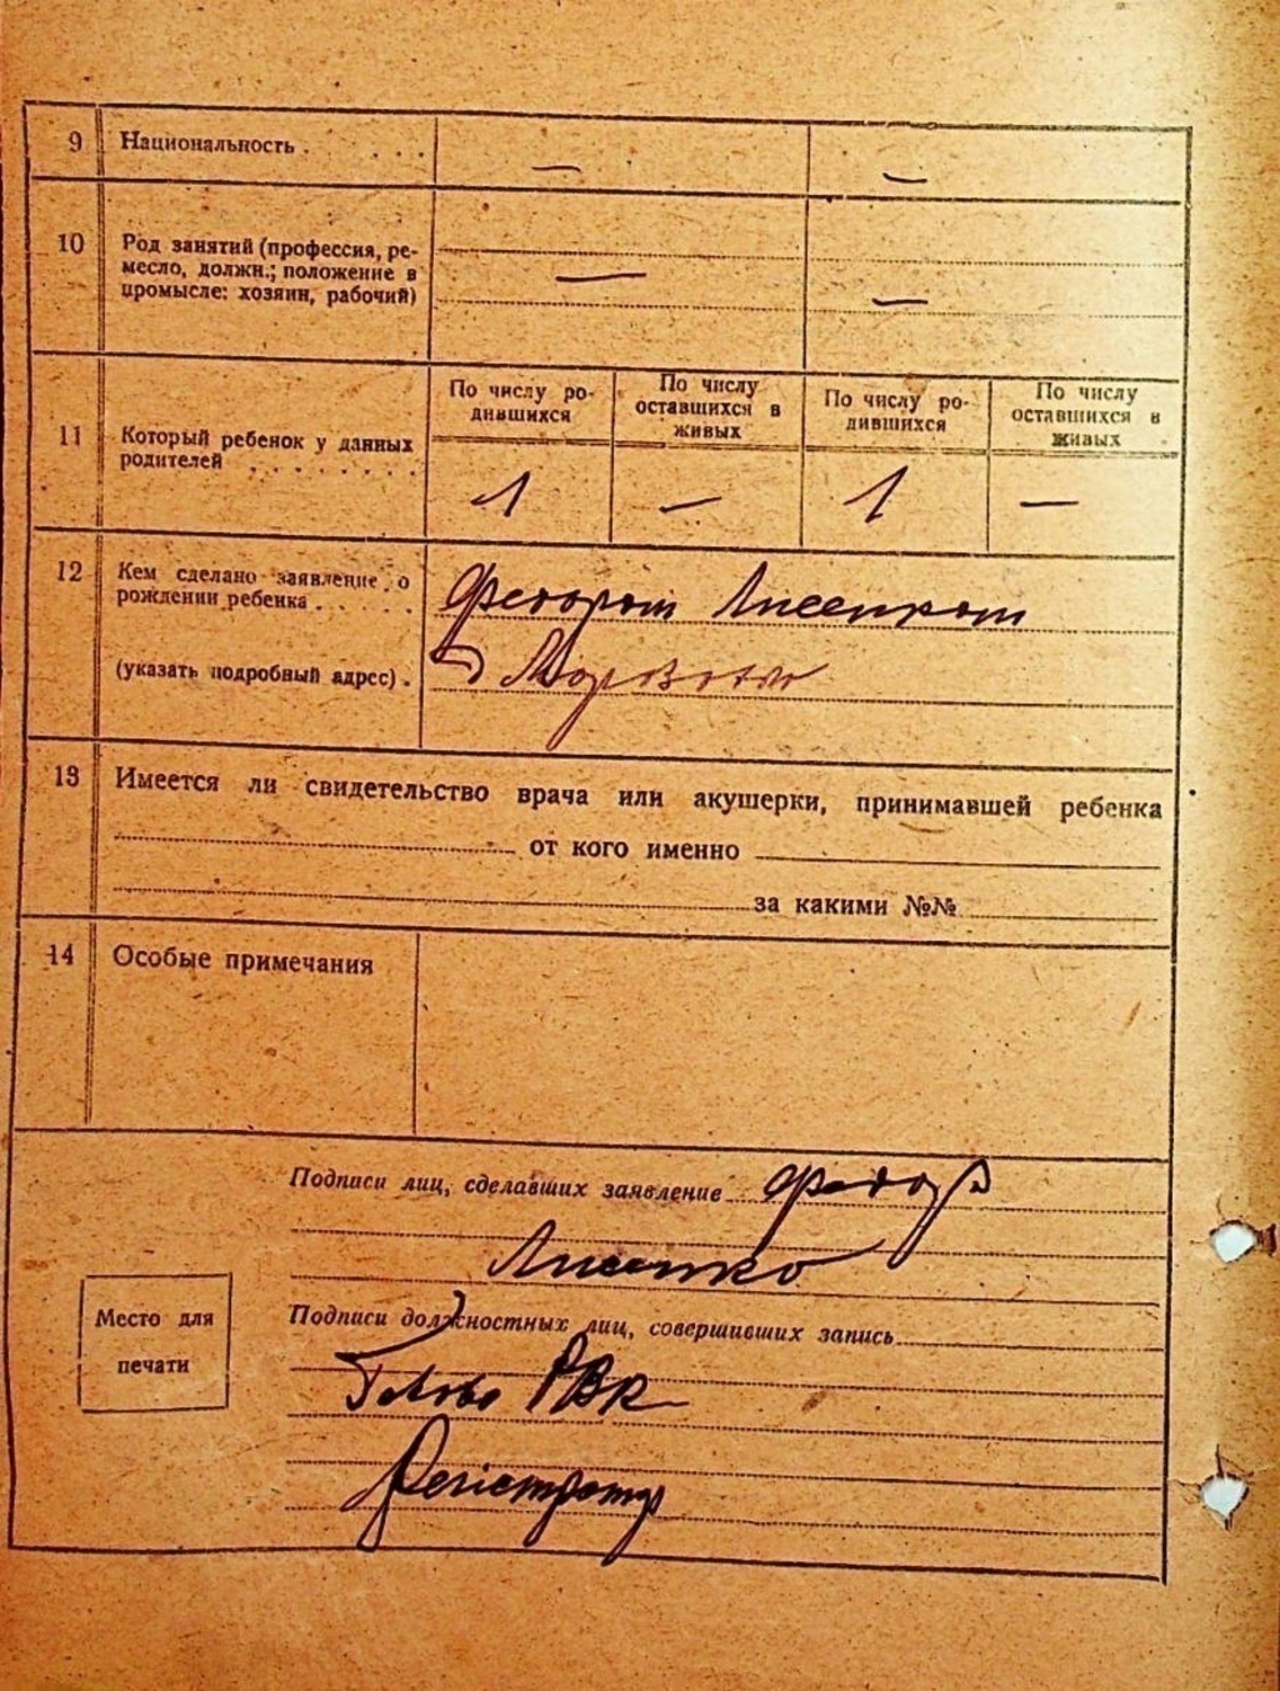 9 Национальность . . . . — —
10 Род занятий (профессия, ре-
месло, должн.; положение в
промысле: хозяин, рабочий) — —
По числу ро-
дившихся
По числу
оставшихся в
живых
По числу ро-
дившихся
По числу
оставшихся в
живых
11 Который ребенок у данных
родителей . . . . . . . 1 — 1 —
12 Кем сделано заявление о
рождении ребенка . . . . . Федором Лисенком
(указать подробный адрес) .
13 Имеется ли свидетельство врача или акушерки, принимавшей ребенка
от кого именно
за какими №№
14 Особые примечания
Подписи лиц, сделавших заявление Федор
Лисенко
Подписи должностных лиц, совершивших запись
Место для
печати
Голова РВК
Регістратор